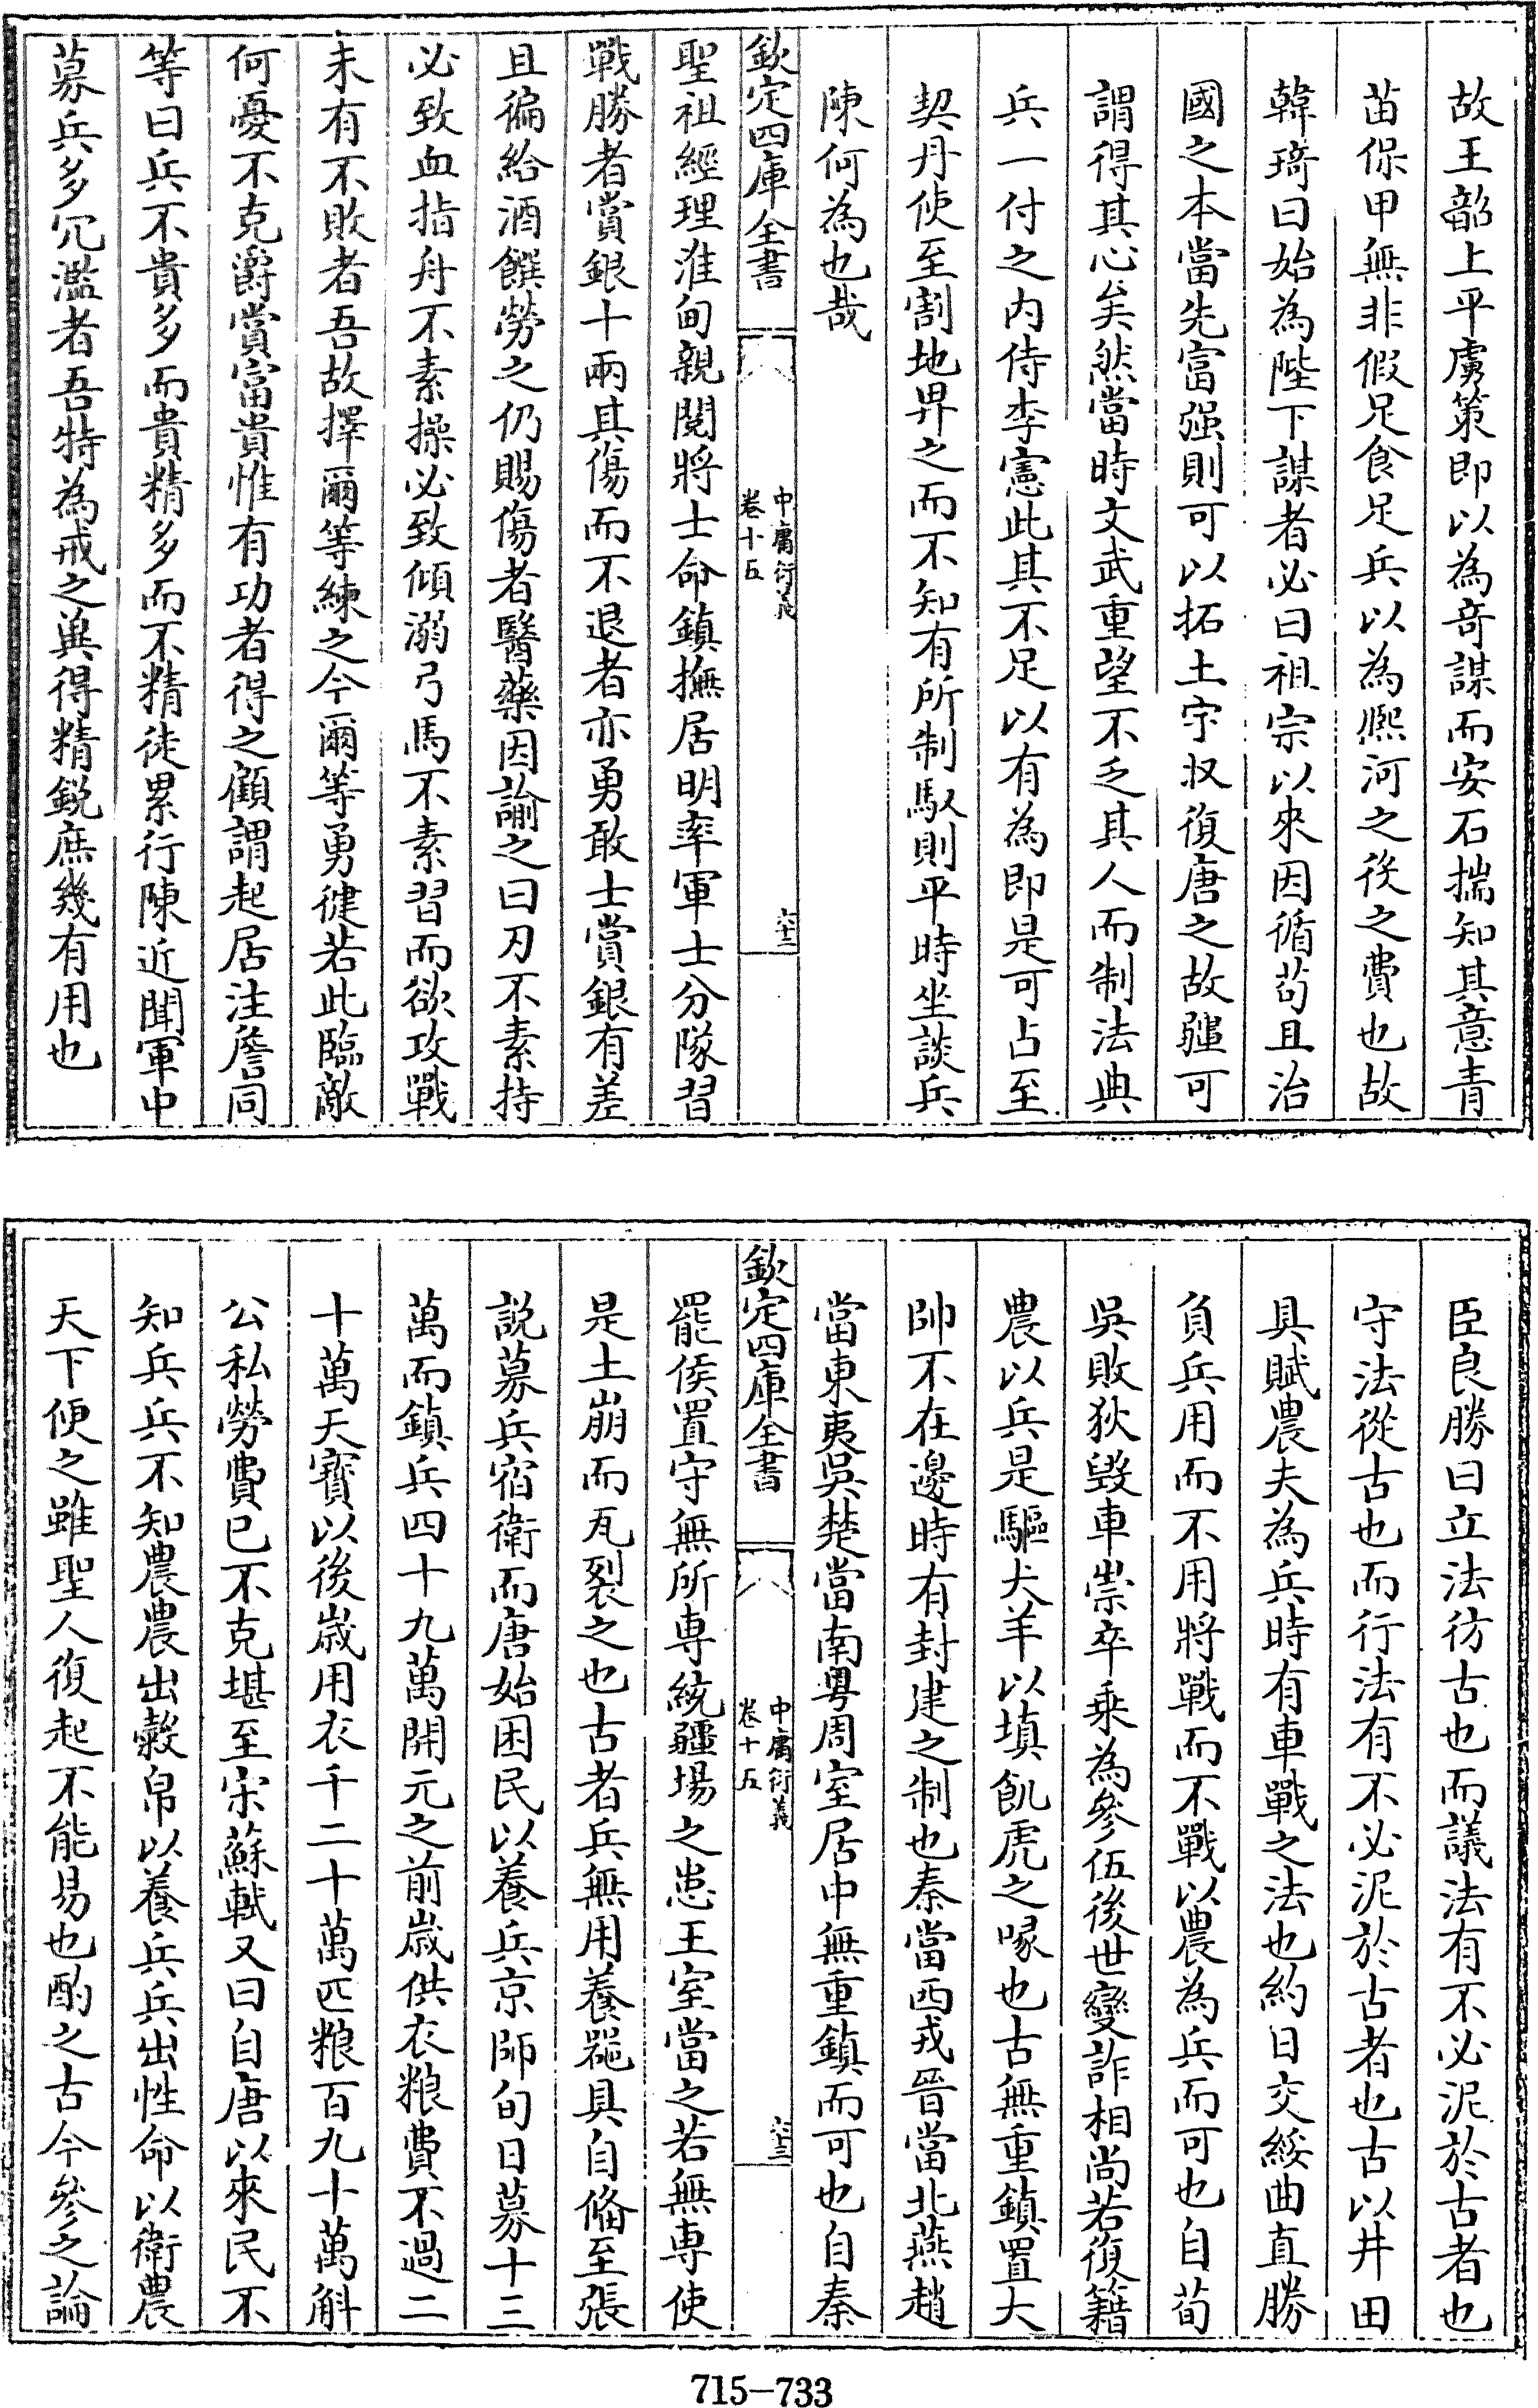 故王韶上平虜策即以為奇謀而安石揣知其意青
苗保甲無非假足食足兵以為熈河之後之費也故
韓琦曰始為陛下謀者必曰祖宗以來因循苟且治
國之本當先富强則可以拓土宇収復唐之故疆可
謂得其心矣然當時文武重望不乏其人而制法典
兵一付之内侍李憲此其不足以有為即是可占至
契丹使至割地畀之而不知有所制馭則平時坐談兵
陳何為也哉
欽定四庫全書
中庸衍義
卷十五
六十二
聖祖經理淮甸親閱將士命鎮撫居明率軍士分隊習
戰勝者賞銀十兩其傷而不退者亦勇敢士賞銀有差
且徧給酒饌勞之仍賜傷者醫藥因諭之曰刃不素持
必致血指舟不素操必致傾溺弓馬不素習而欲攻戰
未有不敗者吾故擇爾等練之今爾等勇健若此臨敵
何憂不克爵賞富貴惟有功者得之顧謂起居注詹同
等曰兵不貴多而貴精多而不精徒累行陳近聞軍中
募兵多冗濫者吾特為戒之兾得精鋭庶幾有用也
臣良勝曰立法彷古也而議法有不必泥於古者也
守法從古也而行法有不必泥於古者也古以井田
具賦農夫為兵時有車戰之法也約日交綏曲直勝
負兵用而不用將戰而不戰以農為兵而可也自荀
吳敗狄毀車崇卒乗為參伍後世變詐相尚若復籍
農以兵是驅犬羊以填飢虎之喙也古無重鎮置大
帥不在邊時有封建之制也秦當西戎晉當北燕趙
當東夷吳楚當南粤周室居中無重鎮而可也自秦
欽定四庫全書
中庸衍義
卷十五
六十三
罷侯置守無所専統疆場之患王室當之若無専使
是土崩而瓦裂之也古者兵無用養噐具自偹至張
説募兵宿衛而唐始困民以養兵京師旬日募十三
萬而鎮兵四十九萬開元之前歳供衣粮費不過二
十萬天寳以後歳用衣千二十萬匹粮百九十萬斛
公私勞費已不克堪至宋蘇軾又曰自唐以來民不
知兵兵不知農農出榖帛以養兵兵出性命以衛農
天下便之雖聖人復起不能易也酌之古今參之論
715-733